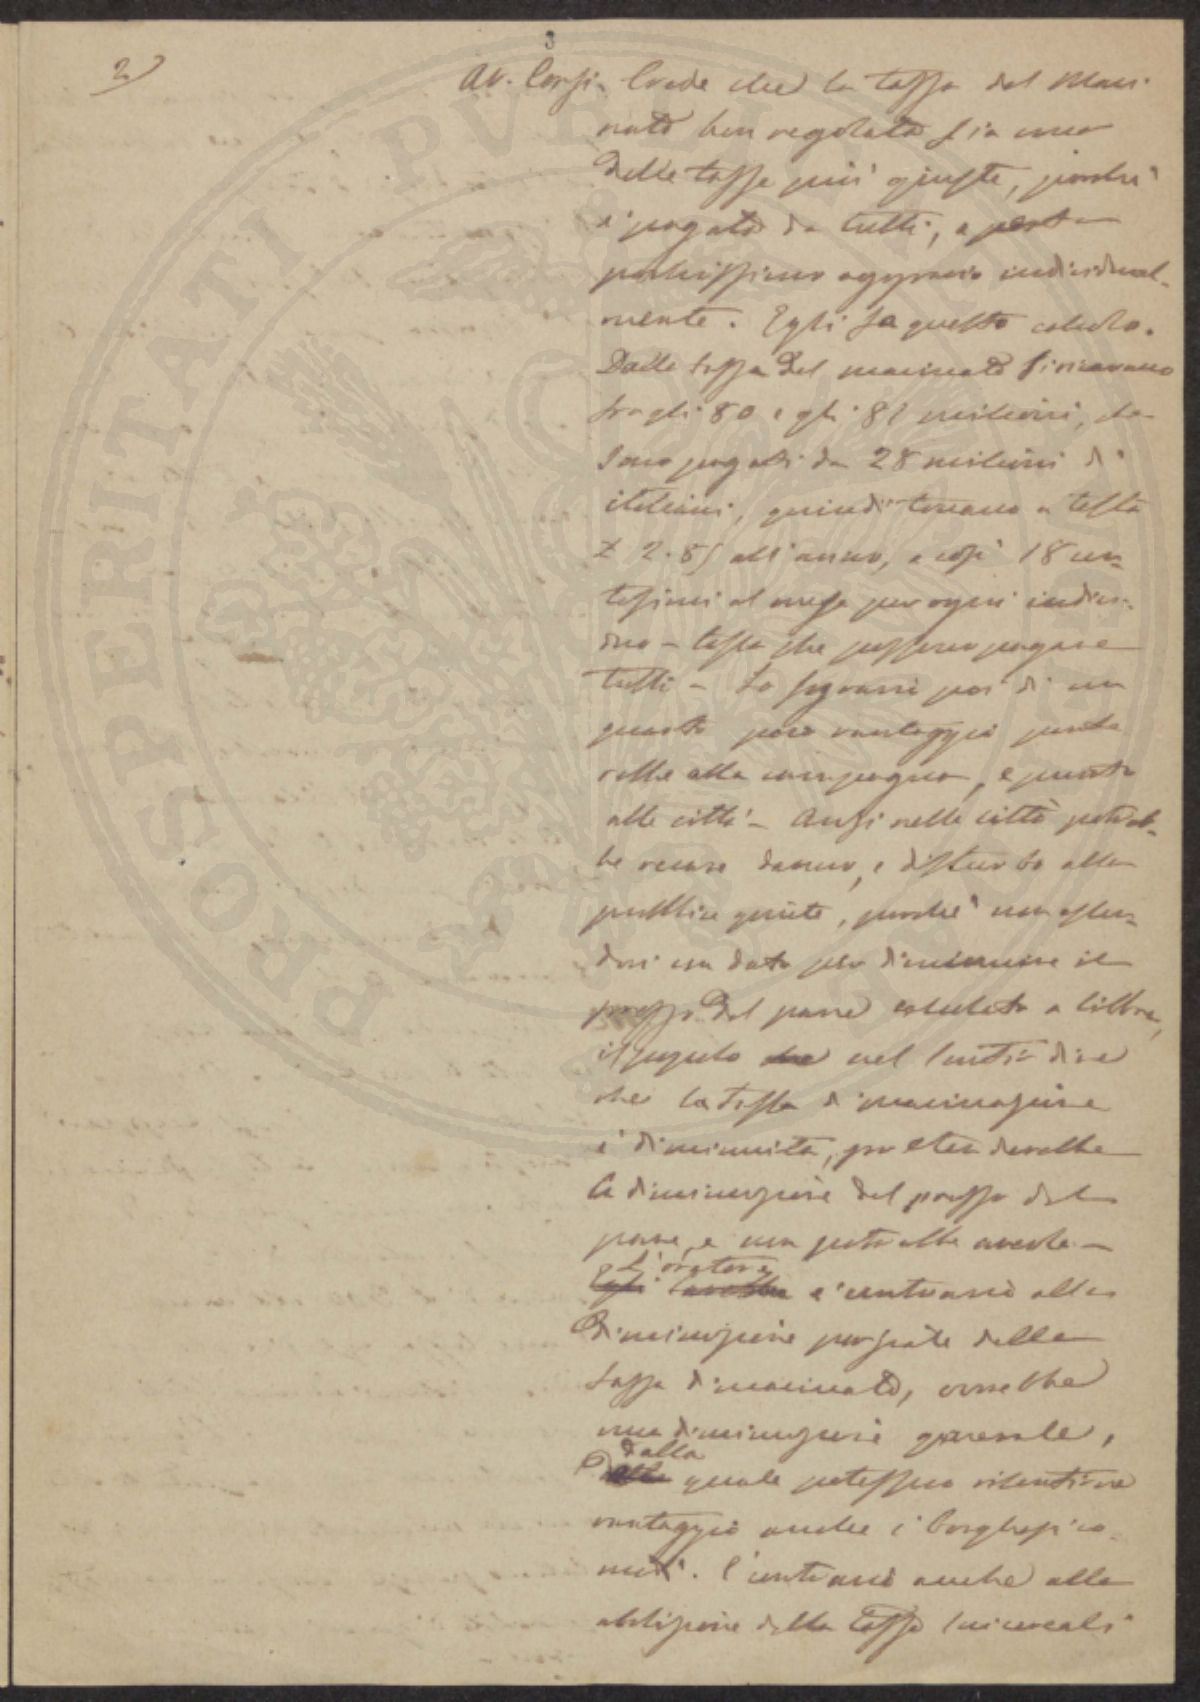 3
2)
Av. Corsi. Crede che la tassa del Maci-
nato ben regolata sia una
delle tasse più giuste, perché
è pagata da tutti, e porta
pochissimo aggravio individual-
mente. Egli fa questo calcolo.
Dalla tassa del macinato si ricavano
fra gli 80 e gli 81 milioni, che
sono pagati da 28 milioni di
italiani, quindi tornano a testa
£ 2.85 all'anno, e così 18 cen-
tesimi al mese per ogni indivi-
duo - tassa che possono pagare
tutti - Lo sgravio poi di un
quarto poco vantaggio porte-
rebbe alla campagna, e punto
alle città - Anzi nelle città potreb-
be recare danno, e disturbo alla
pubblica quiete, perché non essen-
dovi un dato per diminuire il
prezzo del pane calcolato a libbra,
il popolo nel sentir dire
che la tassa di macinazione
è diminuita, pretenderebbe
la diminuzione del prezzo del
pane, e non potrebbe averla -
L'oratore
Egli è contrario alla
diminuzione parziale della
tassa di macinato, vorrebbe
una diminuzione generale,
dalla
quale potessero risentirne
vantaggio anche i borghesi co-
modi. È contrario anche alla
abolizione della tassa sui cereali
PROSPERITATI PUBLICAE